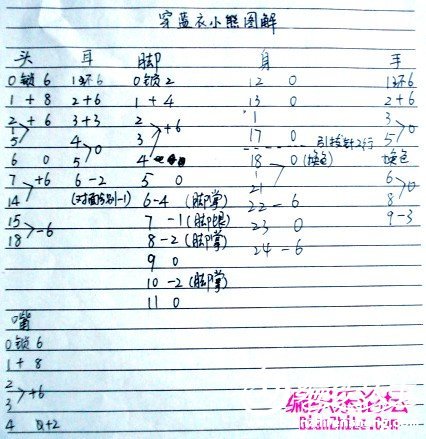 穿蓝衣小熊图解
头 耳 脚 身 手
0锁6 1环6 0锁2 12 0 1环6
1+8 2+6 1+4 13 0 2+6
2 +6 3+3 2 +6 1 3
5 4 3 17 0 5 0
6 0 5 0 4 引拔针2行 换色
7 +6 6-2 5 0 18 0(换色) 6
14 (对面分别-1) 6-4(脚掌) 21 8 0
15 7-1(脚 22-6 9-3
18 -6 8-2(脚掌) 23 0
9 0 24-6
10-2(脚掌)
11 0
嘴
0锁6
1+8
2
3 +6
4 +2